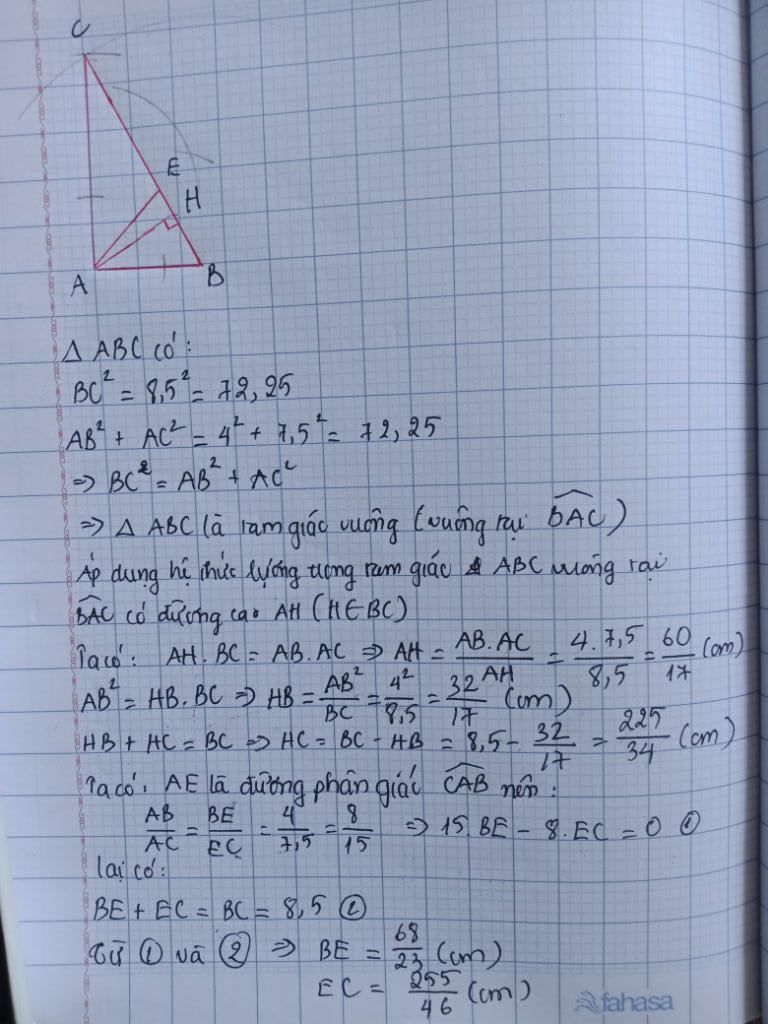 C
E
H
A
B
Δ ABC có:
BC² = 8,5² = 72,25
AB² + AC² = 4² + 7,5² = 72,25
=> BC² = AB² + AC²
=> Δ ABC là tam giác vuông (vuông tại \widehat{BAC})
Áp dụng hệ thức lượng trong tam giác ABC vuông tại
\widehat{BAC} có đường cao AH (H∈BC)
Ta có: AH.BC = AB.AC => AH = \frac{AB.AC}{AH} = \frac{4.7,5}{8,5} = \frac{60}{17} (cm)
AB² = HB.BC => HB = \frac{AB²}{BC} = \frac{4²}{8,5} = \frac{32}{17} (cm)
HB + HC = BC => HC = BC - HB = 8,5 - \frac{32}{17} = \frac{225}{34} (cm)
Ta có: AE là đường phân giác \widehat{CAB} nên:
\frac{AB}{AC} = \frac{BE}{EC} = \frac{4}{7,5} = \frac{8}{15} => 15.BE - 8.EC = 0 ①
lại có:
BE + EC = BC = 8,5 ②
Từ ① và ② => BE = \frac{68}{23} (cm)
EC = \frac{255}{46} (cm)
fahasa